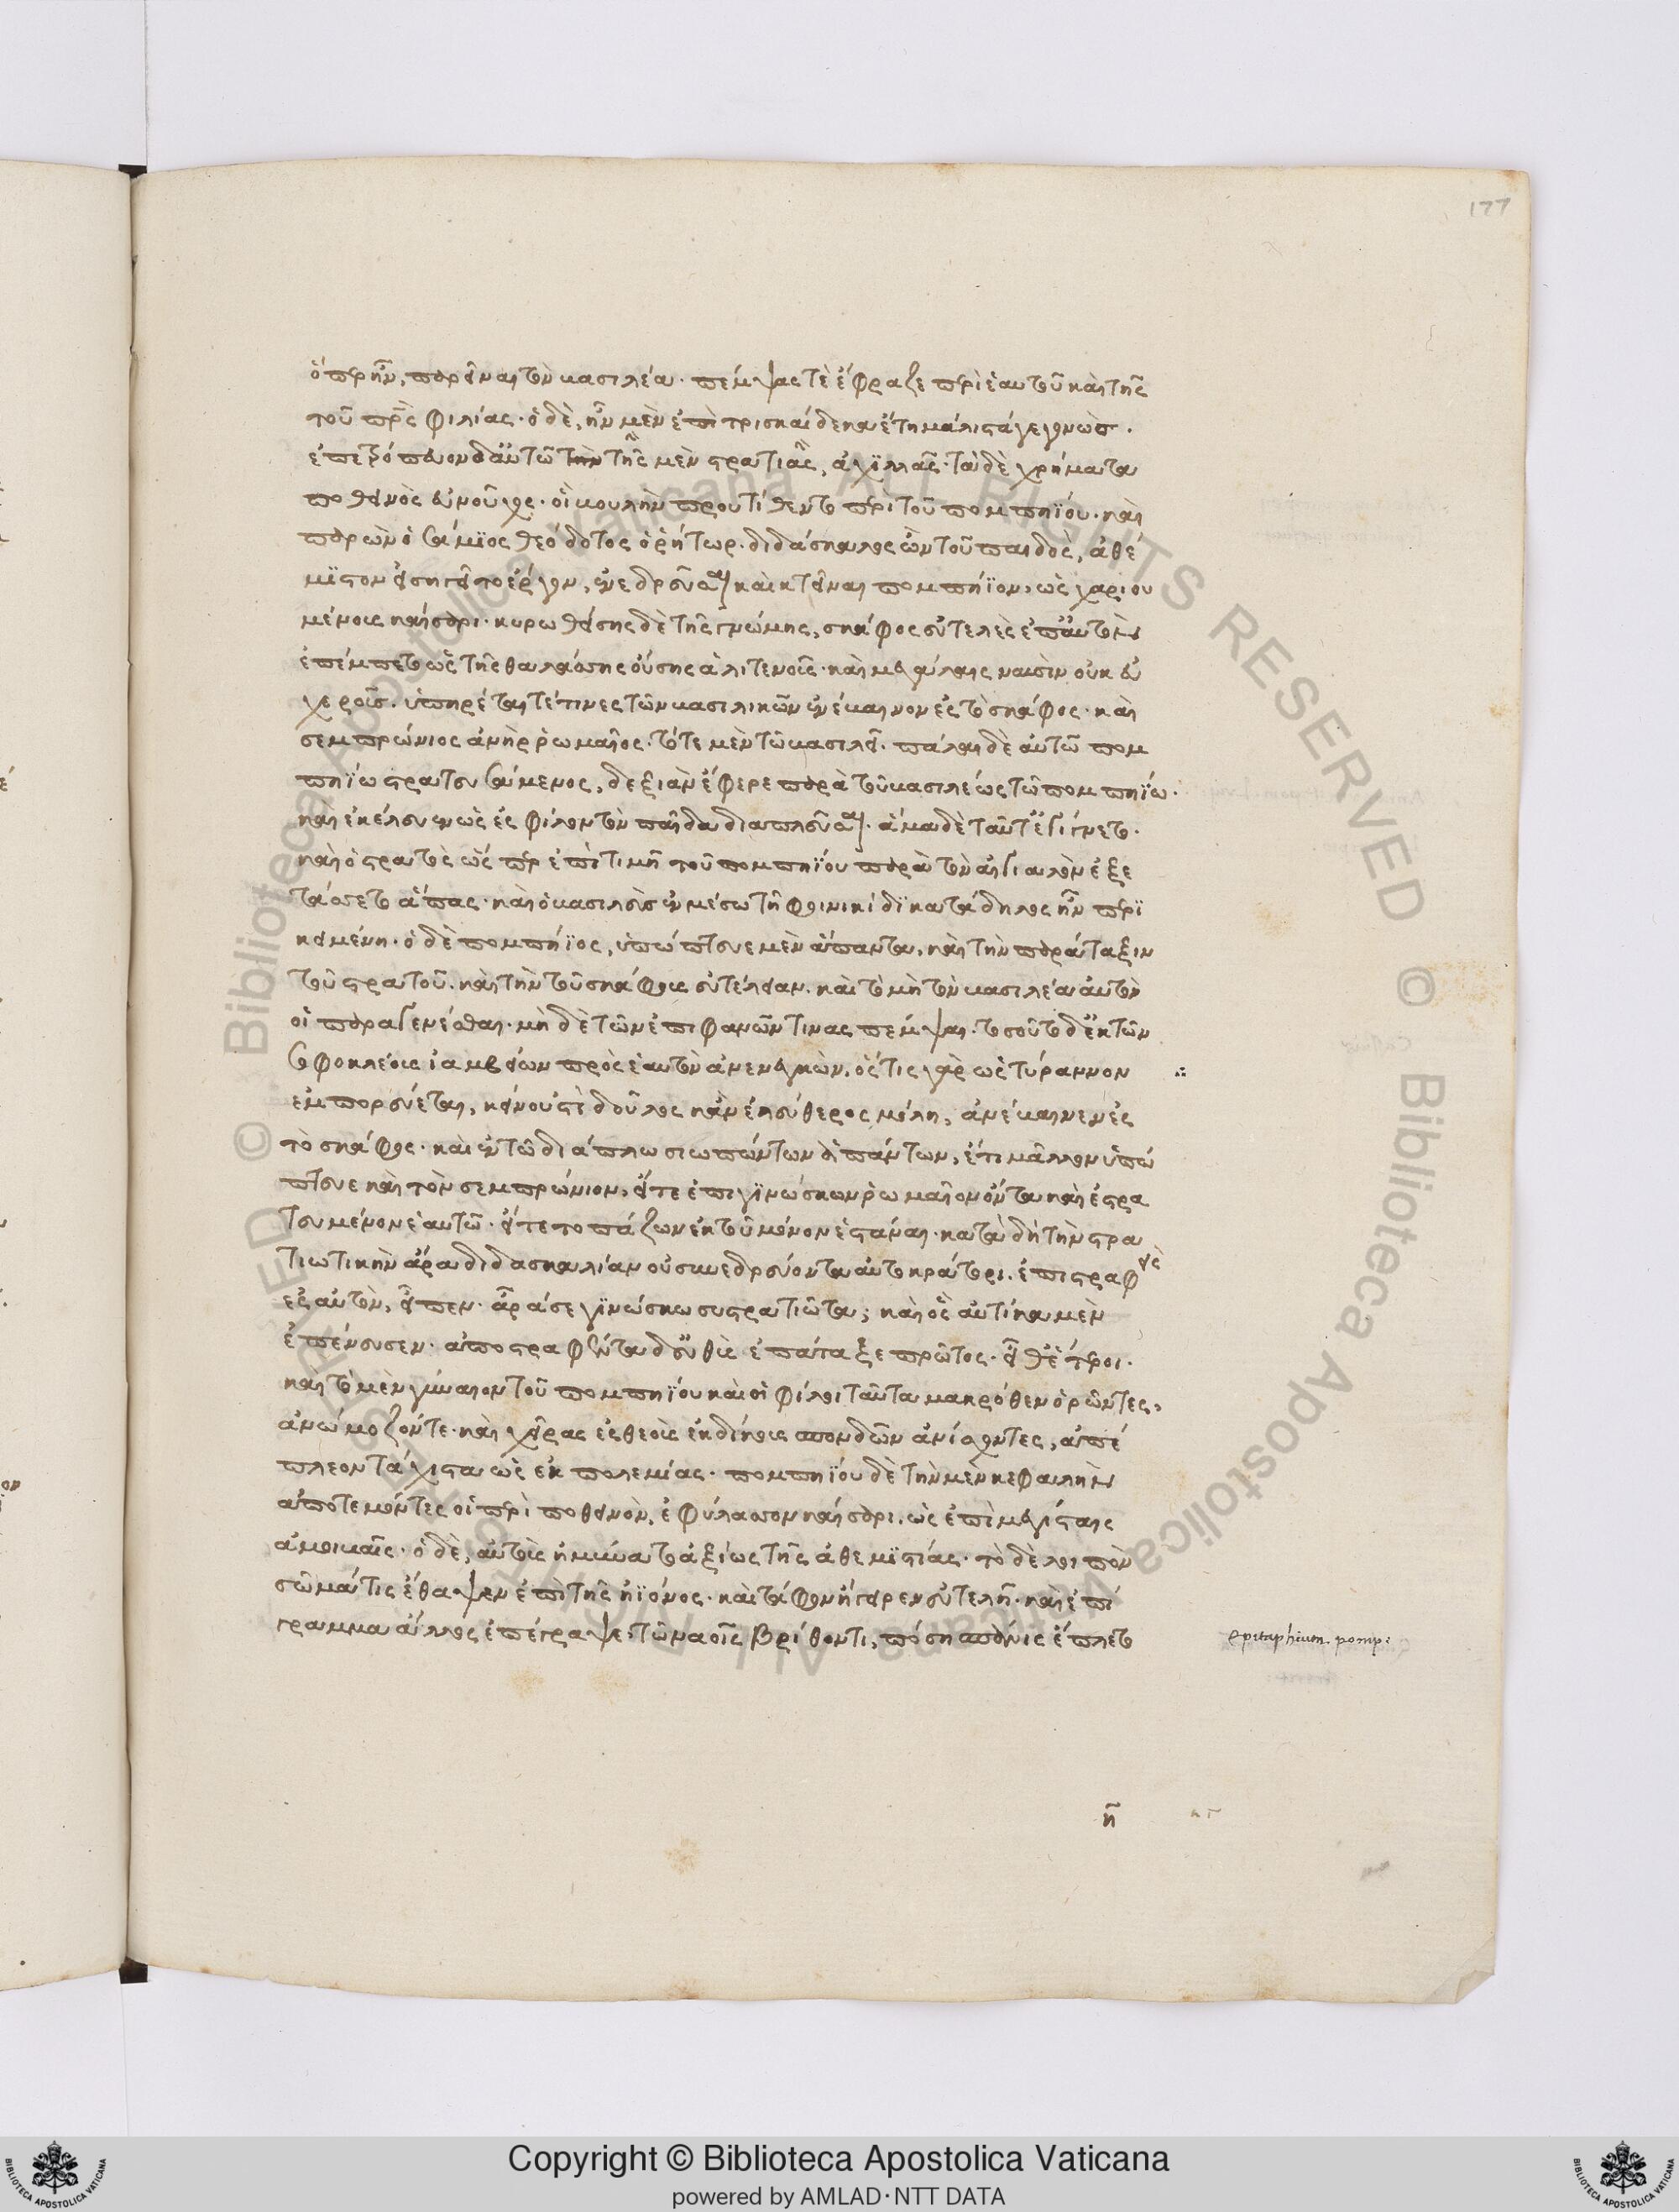 177
ὅπῃ ἦν, παρεῖναι τὸν βασιλέα. πέμψας τὲ ἔφραζε περὶ ἑαυτοῦ καὶ τῆς
τοῦ πρὸς φιλίας. ὁ δὲ, ἦν μὲν ἐπὶ τρισκαίδεκα ἔτη μάλιστα γεγονὼς.
ἐπετρόπευον δ' αὐτῶ τὴν τῆς μὲν στρατιᾶς, ἀχϊλλᾶς. τὰ δὲ χρήματα
ποθεινὸς εὐνοῦχος. οἳ βουλὴν προυτίθεντο περὶ τοῦ πομπηΐου. καὶ
παρὼν ὁ σάμϊος θεόδοτος ὁ ῥήτωρ. διδάσκαλος ὢν τοῦ παιδὸς, ἀθέ
μϊστον εἰσηγεῖτο ἔργον, ἐνεδρεῦσαι καὶ κτεῖναι πομπήϊον, ὡς χαριου
μένοις καίσαρι. κυρωθείσης δὲ τῆς γνώμης, σκάφος εὐτελὲς ἐπ' αὐτὸν
ἐπέμπετο ὡς τῆς θαλάσσης οὔσης ἁλιτενοῦς. καὶ μεγάλαις ναυσὶν οὐκ εὐ
χεροῦς. ὑπηρέται τέ τινες τῶν βασιλικῶν ἐνέβαινον ἐς τὸ σκάφος. καὶ
σεμπρώνιος ἀνὴρ ῥωμαῖος. τότε μὲν τῶ βασιλεῖ. πάλαι δὲ αὐτῶ πομ
πηΐω στρατευσάμενος, δεξιὰν ἔφερε παρὰ τοῦ βασιλέως τῶ πομπηΐω.
καὶ ἐκέλευεν ὡς ἐς φίλον τὸν παῖδα διαπλεῦσαι. ἅμα δὲ ταῦτ' ἐγίγνετο.
καὶ ὁ στρατὸς ὥσπερ ἐπὶ τιμῆ τοῦ πομπηΐου παρὰ τὸν αἰγιαλὸν ἐξε
τάσσετο ἅπας. καὶ ὁ βασιλεὺς ἐν μέσω τῆ φοινικίδϊ κατάδηλος ἦν περϊ
κειμένη. ὁ δὲ πομπήϊος, ὑπώπτευε μὲν ἅπαντα, καὶ τὴν παράταξιν
τοῦ στρατοῦ. καὶ τὴν τοῦ σκάφους εὐτέλειαν. καὶ τὸ μὴ τὸν βασιλέα αὐτὸν
οἱ παραγενέσθαι. μὴ δὲ τῶν ἐπιφανῶν τινας πέμψαι. τοσοῦτο δ' ἐκ τῶν
σοφοκλέους ἰαμβείων πρὸς ἑαυτὸν ἀνενεγκὼν. ὅστις γὰρ ὡς τύραννον
ἐμπορεύεται, κείνου 'στὶ δοῦλος κἂν ἐλεύθερος μόλη, ἀνέβαινεν ἐς
τὸ σκάφος. καὶ ἐν τῶ διάπλω σιωπώντων ἁπάντων, ἔτι μᾶλλον ὑπώ
πτευε καὶ τὸν σεμπρώνιον, εἴτε ἐπιγϊνώσκων ῥωμαῖον ὄντα καὶ ἐστρα
τευμένον ἑαυτῶ. εἴτε τοπάζων ἐκ τοῦ μόνον ἑστάναι. κατὰ δὴ τὴν στρα
τιωτικὴν ἄρα διδασκαλίαν οὐ συνεδρεύοντα αὐτοκράτορι. ἐπιστραφεὶς
ἐς αὐτὸν, εἶπεν. ἆρά σε γϊνώσκω συστρατιῶτα; καὶ ὃς αὐτίκα μὲν
ἐπένευσεν. ἀποστραφέντα δ' εὐθὺς ἐπάταξε πρῶτος. εἶθ' ἕτεροι.
καὶ τὸ μὲν γύναιον τοῦ πομπηΐου καὶ οἱ φίλοι ταῦτα μακρόθεν ὁρῶντες,
ἀνώμοζόν τε. καὶ χεῖρας ἐς θεοὺς ἐκδίκους σπονδῶν ἀνίσχοντες, ἀπέ
πλεον τάχιστα ὡς ἐκ πολεμίας. πομπηΐου δὲ τὴν μὲν κεφαλὴν
ἀποτεμόντες οἱ περὶ ποθεινὸν, ἐφύλασσον καίσαρι. ὡς ἐπὶ μεγίσταις
ἀμοιβαῖς. ὁ δὲ, αὐτοὺς ἠμύνατο ἀξίως τῆς ἀθεμϊστίας. τὸ δὲ λοιπὸν
σῶμά τις ἔθαψεν ἐπὶ τῆς ἠϊόνος. καὶ τάφον ἤγειρεν εὐτελῆ. καὶ ἐπί
γραμμα ἄλλος ἐπέγραψε. τῶ ναοῖς βρίθοντι, πόση σπάνις ἔπλετο
epitaphium pomp: